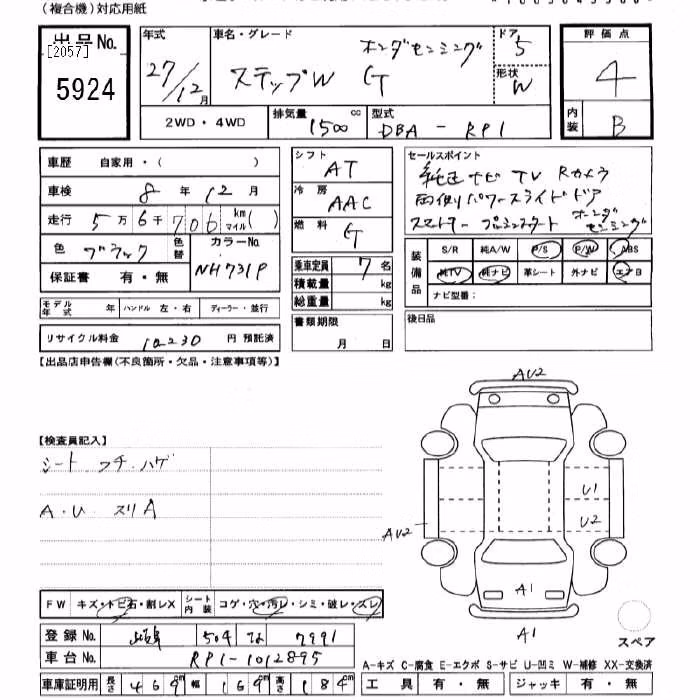 (複合機)対応用紙
出品No.
[2057]
5924
年式 27/12月
車名・グレード ホンダセンシング
ステップW G
ドア 5
形状 W
評価点 4
内装 B
2WD・4WD
排気量 1500 cc
型式 DBA-RP1
車歴 自家用・( )
車検 8年12月
走行 5万6千706 km マイル( )
色 ブラック
色替
カラーNo. NH731P
保証書 有・無
モデル年式 年 ハンドル 左・右 ディーラー・並行
リサイクル料金 10230 円 預託済
シフト AT
冷房 AAC
燃料 G
乗車定員 7名
積載量 kg
総重量 kg
書類期限
月 日
セールスポイント
純正ナビ TV Rカメラ
両側パワースライドドア
スマートキー プッシュスタート ホンダセンシング
装備品
S/R 純A/W P/S P/W ABS
純TV 純ナビ 革シート 外ナビ エアB
ナビ型番:
後日品
【出品店申告欄(不良箇所・欠品・注意事項等)】
【検査員記入】
シート フチ ハゲ
A・U スリA
AU2
U1
U2
AU2
A1
A1
スペア
FW キズ・トビ石・割レX
シート内装 コゲ・穴・汚レ・シミ・破レ・スレ
登録No. 504 7991
車台No. RP1-1012895
車庫証明用 長さ 469cm 幅 169cm 高さ 184cm
A-キズ C-腐食 E-エクボ S-サビ U-凹ミ W-補修 XX-交換済
工具 有・無 ジャッキ 有・無